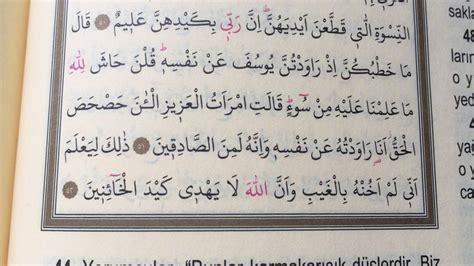 النِّسْوَةِ الّٰتٖى قَطَّعْنَ اَيْدِيَهُنَّ اِنَّ رَبّٖى بِكَيْدِهِنَّ عَلٖيمٌ ﴿٥٠﴾ قَالَ
مَا خَطْبُكُنَّ اِذْ رَاوَدْتُنَّ يُوسُفَ عَنْ نَفْسِهٖ قُلْنَ حَاشَ لِلّٰهِ
مَا عَلِمْنَا عَلَيْهِ مِنْ سُوءٍ قَالَتِ امْرَاَتُ الْعَزٖيزِ الْـٰٔنَ حَصْحَصَ
الْحَقُّ اَنَا رَاوَدْتُهُ عَنْ نَفْسِهٖ وَاِنَّهُ لَمِنَ الصَّادِقٖينَ ﴿٥١﴾ ذٰلِكَ لِيَعْلَمَ
اَنّٖى لَمْ اَخُنْهُ بِالْغَيْبِ وَاَنَّ اللّٰهَ لَا يَهْدٖى كَيْدَ الْخَائِنٖينَ ﴿٥٢﴾
44. Yorumcular, "Bunlar karmakarışık düşlerdir. Biz